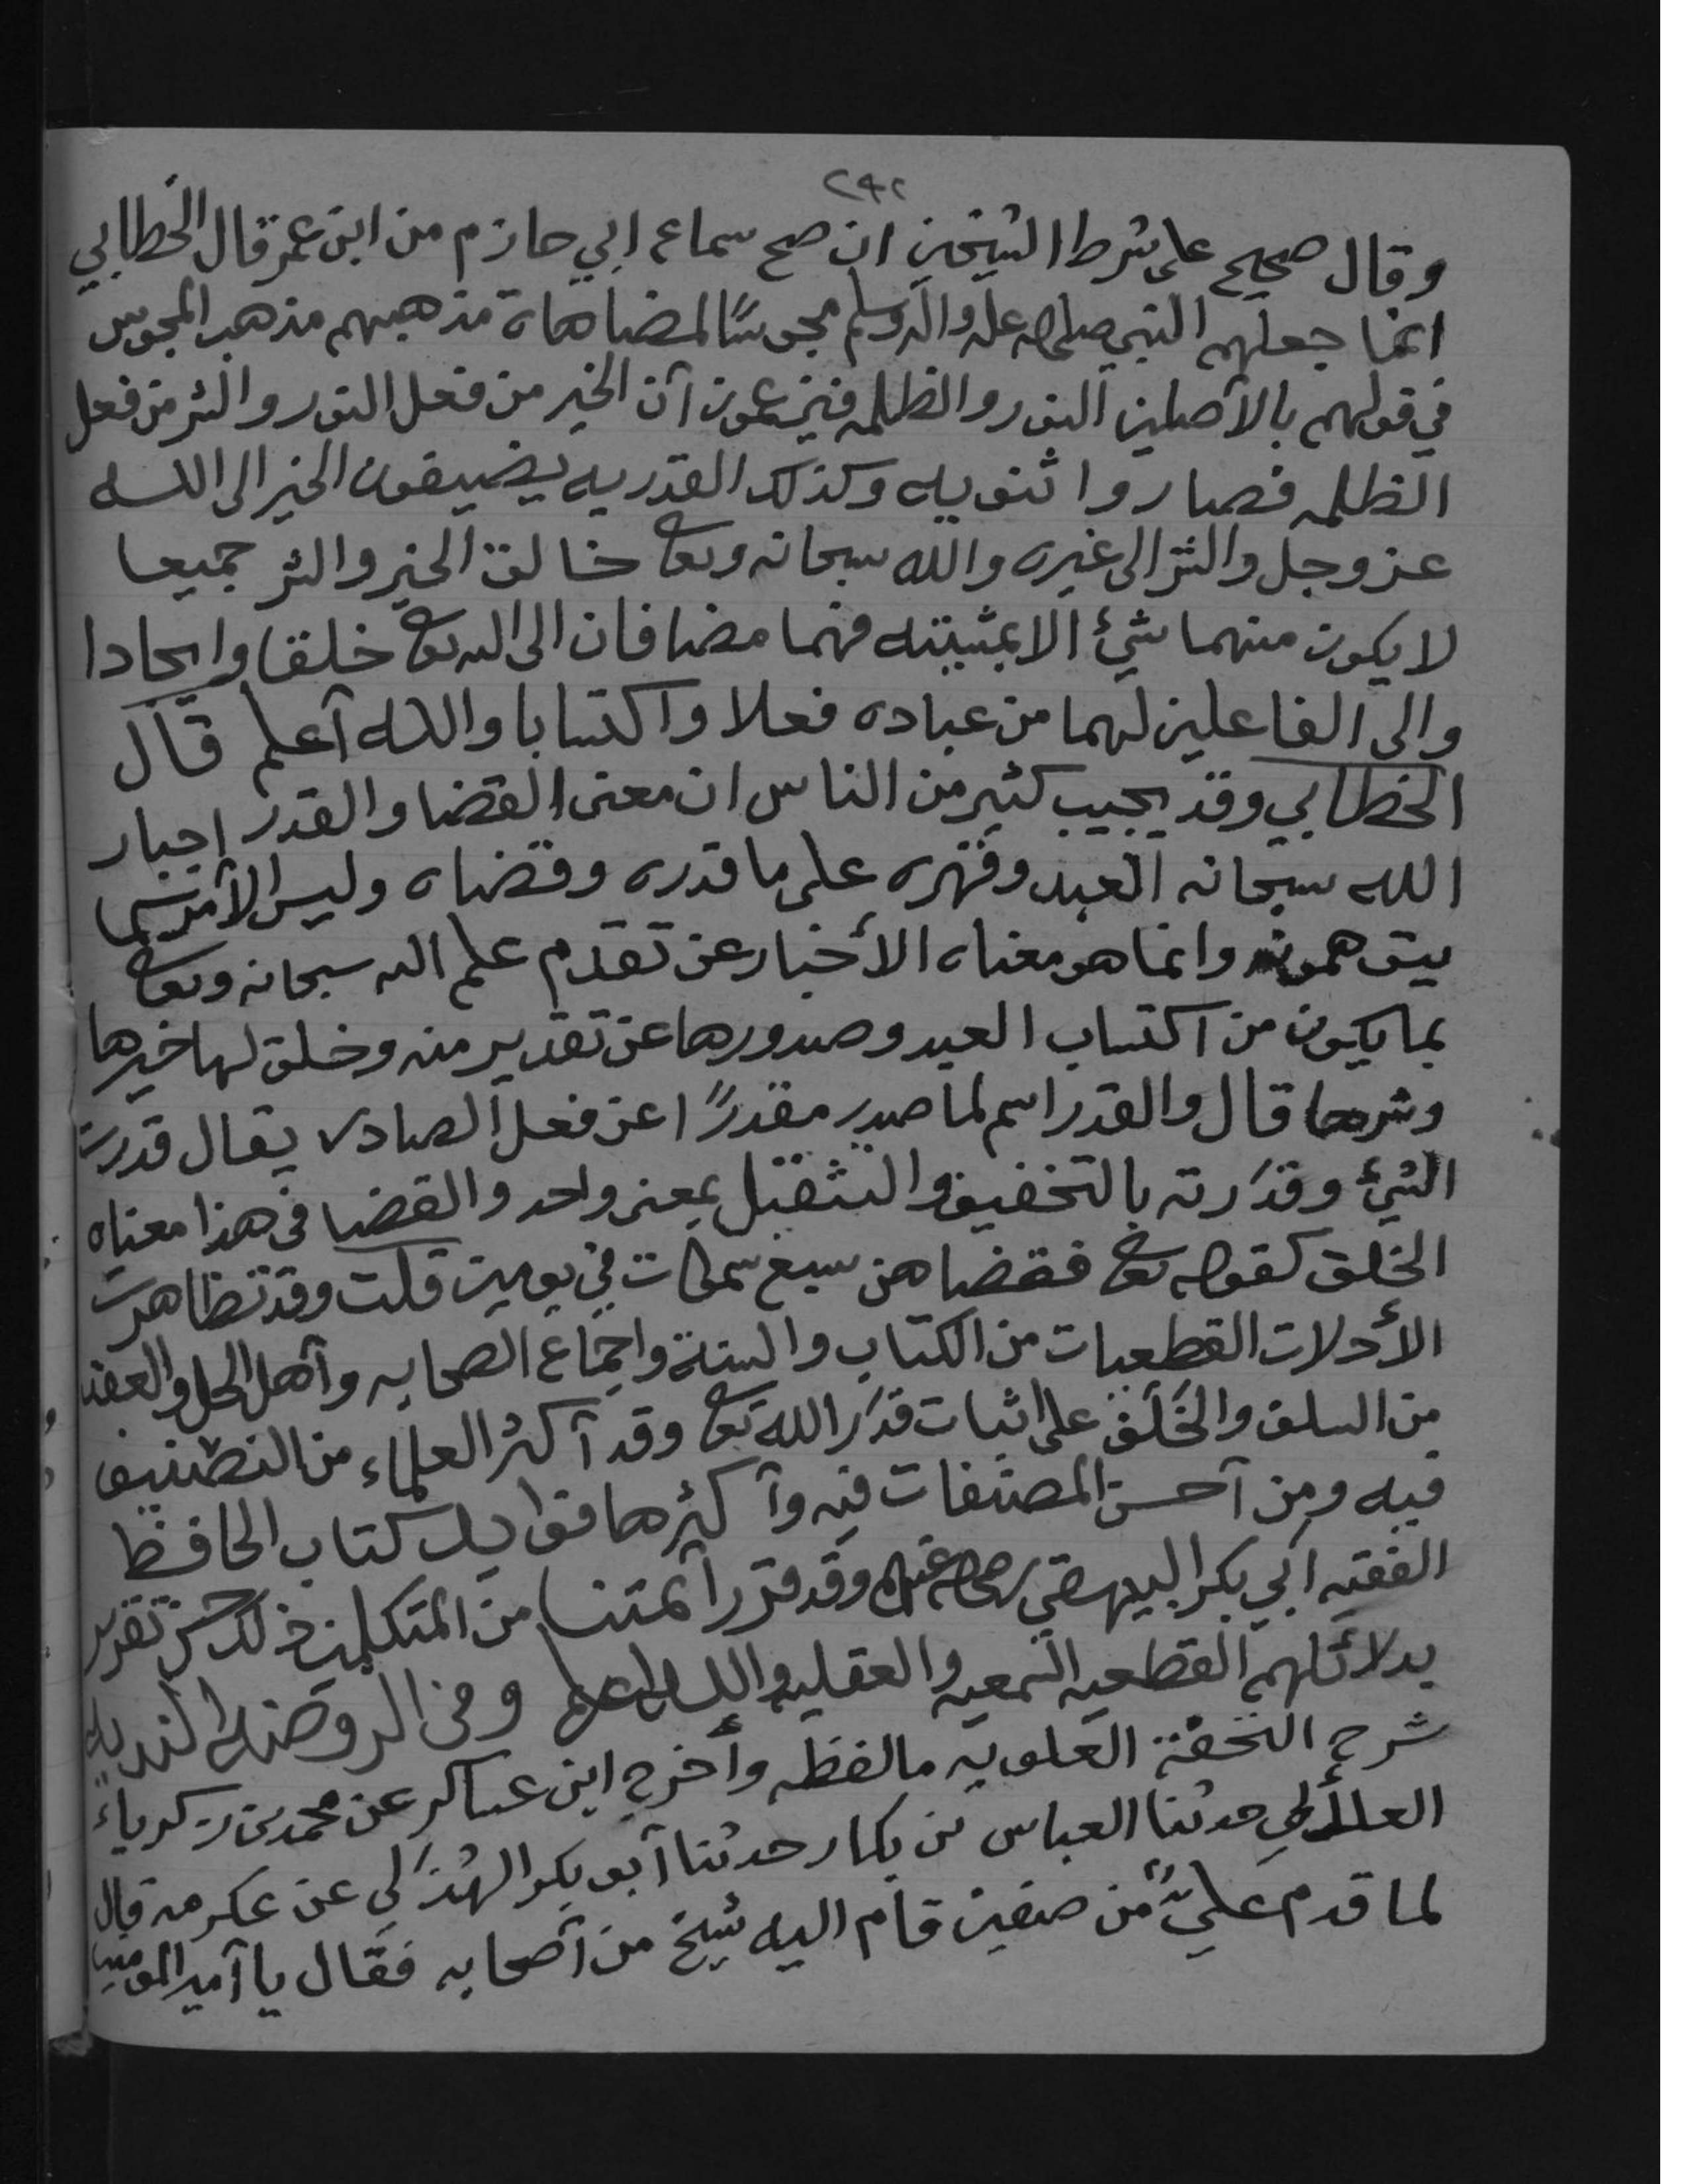 ٢٩٢
وقال صحيح على شرط الشيخين ان صح سماع ابي حازم من ابن عمر قال الخطابي
انما جعلهم النبي صلى الله عليه واله وسلم مجوسًا لمضاهاة مذهبهم مذهب المجوس
في قولهم بالأصلين النور والظلمه فيزعمون أن الخير من فعل النور والشر من فعل
الظلمه فصاروا ثنويه وكذلك القدريه يضيفون الخير الى الله
عز وجل والشر الى غيره والله سبحانه وتعا خالق الخير والشر جميعا
لا يكون منهما شيئ الا بمشيئته فهما مضافان الى الله تعا خلقا وايجادا
والى الفاعلين لهما من عباده فعلا واكتسابا والله أعلم قال
الخطابي وقد يحيب كثير من الناس ان معنى القضا والقدر اجبار
الله سبحانه العبد وقهره على ما قدره وقضاه وليس الأمر كما
يتوهمونه وانما هو معناه الأخبار عن تقدم علم الله سبحانه وتعا
بما يكون من اكتساب العبد وصدورها عن تقدير منه وخلق لها خيرها
وشرها قال والقدر اسم لما صدر مقدرًا عن فعل الصادر يقال قدرت
الشيئ وقدَرته بالتخفيف والتثقيل بمعنى واحد والقضا في هذا معناه
الخلق كقوله تعا فقضاهن سبع سموات في يومين قلت وقد تظاهرت
الأدلات القطعيات من الكتاب والسنة واجماع الصحابه وأهل الحل والعقد
من السلف والخَلَف على اثبات قدَر الله تعا وقد أكثر العلماء من التصنيف
فيه ومن أحسن المصنفات فيه وأكثرها فوايد كتاب الحافظ
الفقيه أبي بكر البيهقي رضي الله عنه وقد قرر أئمتنا من المتكلمين ذلك حسن تقرير
بدلائلهم القطعيه السمعيه والعقليه والله اعلم وفي الروضة النديه
شرح التحفة العلويه ما لفظه وأخرج ابن عساكر عن محمد بن زكرياء
العلأبي حدثنا العباس بن بكار حدثنا أبو بكر الهُذَلي عن عكرمه قال
لما قدم عليٌّ من صفين قام اليه شيخ من أصحابه فقال يا أمير المؤمنين